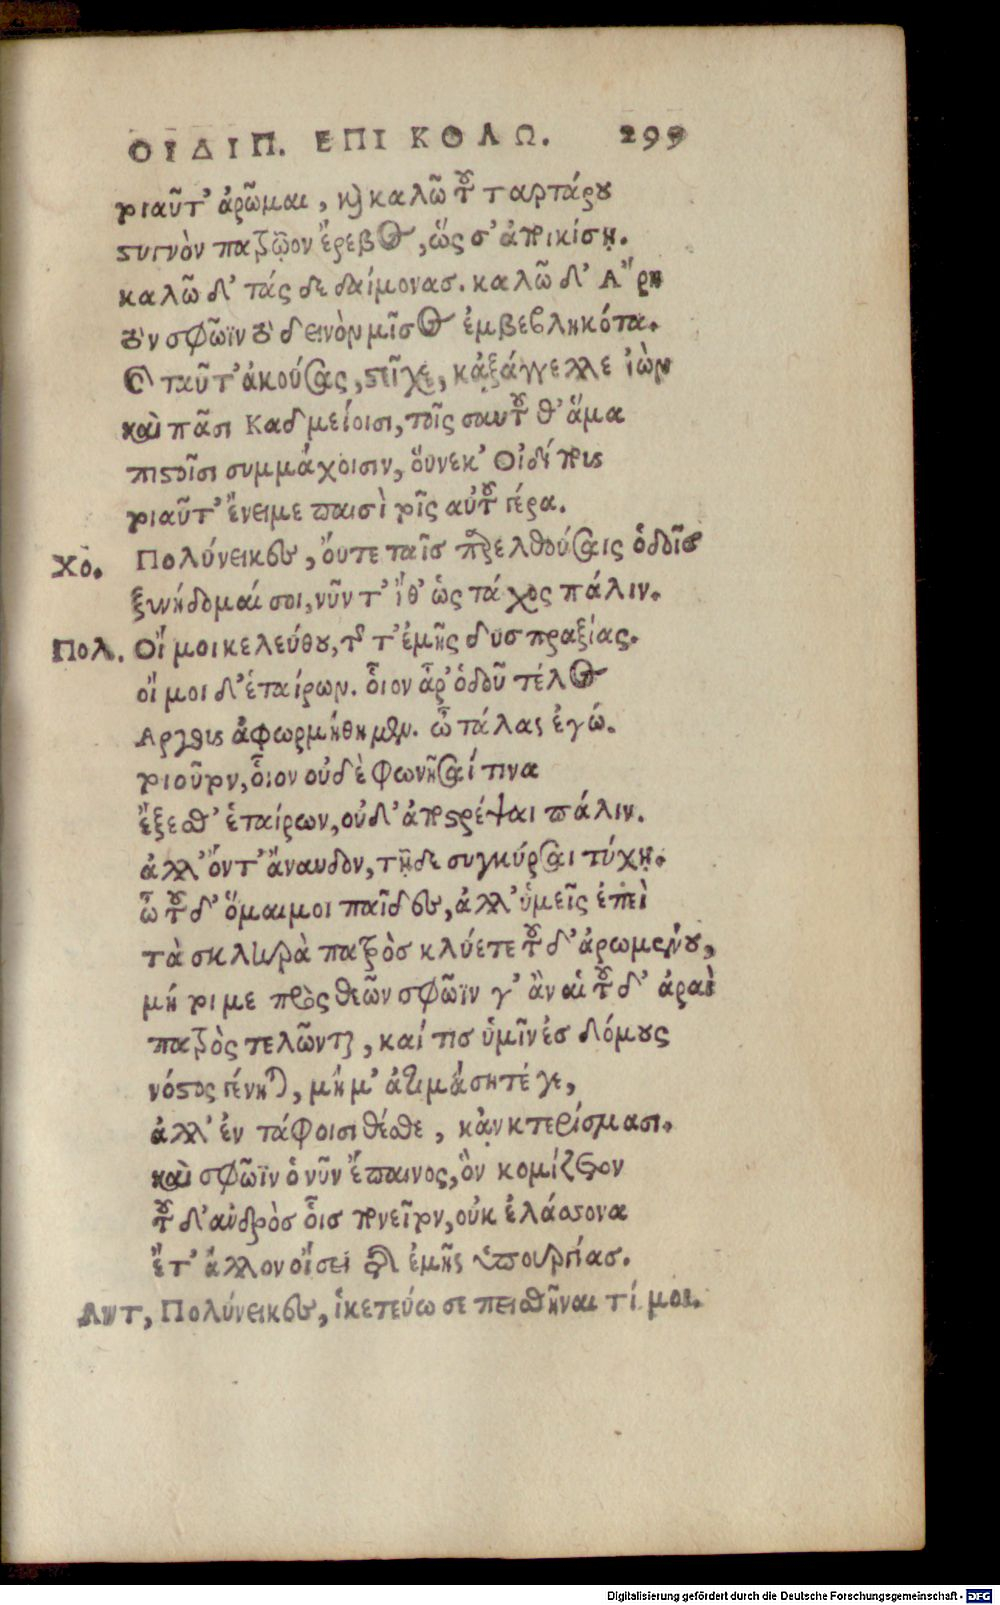 ΟΙΔΙΠ. ΕΠΙ ΚΟΛΩ. 299
τοιαῦτ’ ἀρῶμαι, καὶ καλῶ τοῦ ταρτάρου
στυγνὸν πατρῷον ἔρεβος, ὥς σ’ ἀποικίσῃ.
καλῶ δ’ τάς δε δαίμονας. καλῶ δ’ Ἄρη
τὸν σφῶϊν τὸ δεινὸν μῖσος ἐμβεβληκότα.
καὶ ταῦτ’ ἀκούσας, στεῖχε, κἀξάγγελλε ἰὼν
καὶ πᾶσι Καδμείοισι, τοῖς σαυτοῦ θ’ ἅμα
πιστοῖσι συμμάχοισιν, ὅυνεκ’ Οἰδίπους
τοιαῦτ’ ἔνειμε παισὶ τοῖς αὑτοῦ γέρα.
Χο. Πολύνεικες, ὄυτε ταῖς παρελθούσαις ὁδοῖς
ξυνήδομαί σοι, νῦν τ’ ἴθ’ ὡς τάχος πάλιν.
Πολ. Οἴ μοι κελεύθου, τῆς τ’ ἐμῆς δυσπραξίας.
οἴ μοι δ’ ἑταίρων. ὅιον ἆρ’ ὁδοῦ τέλος
Αργους ἀφωρμήθημεν. ὦ τάλας ἐγώ.
τοιοῦτον, ὅιον οὐδὲ φωνῆσαί τινα
ἔξεσθ’ ἑταίρων, οὐδ’ ἀποστρέψαι πάλιν.
ἀλλ’ ὄντ’ ἄναυδον, τῇδε συγκύρσαι τύχῃ.
ὦ τοῦδ’ ὅμαιμοι παῖδες, ἀλλ’ ὑμεῖς ἐπεὶ
τὰ σκληρὰ πατρὸς κλύετε τοῦδ’ ἀρωμένου,
μή τοι με πρὸς θεῶν σφῶϊν γ’ ἂν αἱ τοῦδ’ ἀραὶ
πατρὸς τελῶνται, καί τις ὑμῖν ἐς δόμους
νόστος γένηται, μή μ’ ἀτιμάσητέ γε,
ἀλλ’ ἐν τάφοισι θέσθε, κἀν κτερίσμασι.
καὶ σφῶϊν ὁ νῦν ἔπαινος, ὃν κομίζετον
τοῦδ’ ἀνδρὸς ὅις πονεῖτον, οὐκ ἐλάσσονα
ἔτ’ ἄλλον οἴσει τῆς ἐμῆς ὑπουργίας.
Αντ, Πολύνεικες, ἱκετεύω σε πεισθῆναι τί μοι.
Digitalisierung gefördert durch die Deutsche Forschungsgemeinschaft - DFG